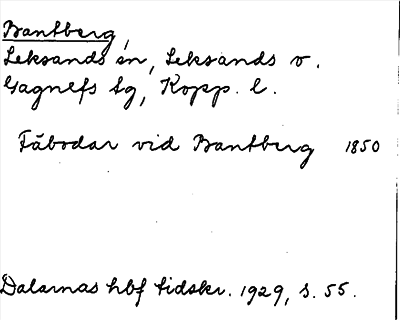 Bantberg,
Leksands sn, Leksands o.
Gagnefs tg, Kopp. l.
Fäbodar vid Bantberg 1850
Dalarnas hbf tidskr. 1929, s. 55.